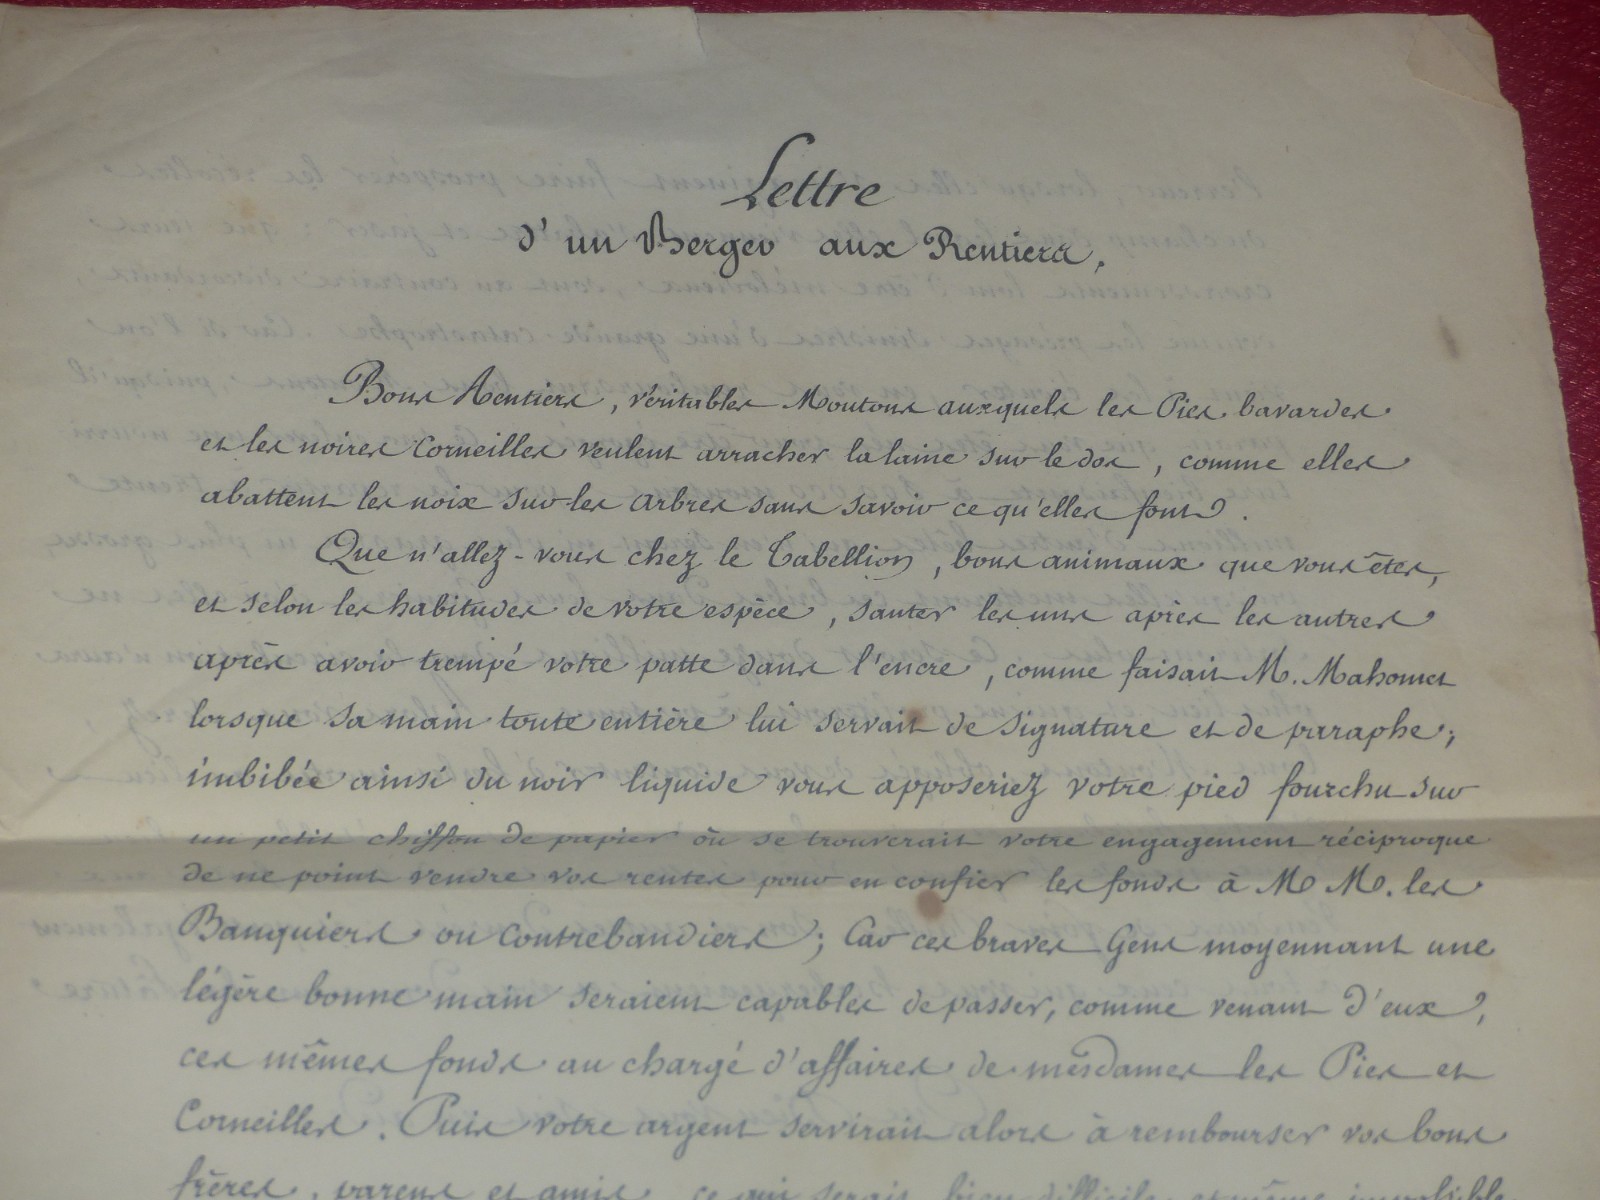 Lettre
d'un Berger aux Rentiers,
Bons Rentiers, véritables Moutons auxquels les Pies bavardes
et les noires Corneilles veulent arracher la laine sur le dos, comme elles
abattent les noix sur les arbres sans savoir ce qu'elles font.
Que n'allez-vous chez le Tabellion, bons animaux que vous êtes,
et selon les habitudes de votre espèce, sauter les uns après les autres
après avoir trempé votre patte dans l'encre, comme faisait M. Mahomet
lorsque sa main toute entière lui servait de signature et de paraphe;
imbibée ainsi du noir liquide vous apposeriez votre pied fourchu sur
un petit chiffon de papier où se trouverait votre engagement réciproque
de ne point vendre vos rentes pour en confier les fonds à M M. les
Banquiers ou Contrebandiers; Car ces braves Gens moyennant une
légère bonne main seraient capables de passer, comme venant d'eux,
ces mêmes fonds au chargé d'affaires de mesdames les Pies et
Corneilles. Puis votre argent servirait alors à rembourser vos bons
frères, parens et amis, ce qui serait bien difficile et même